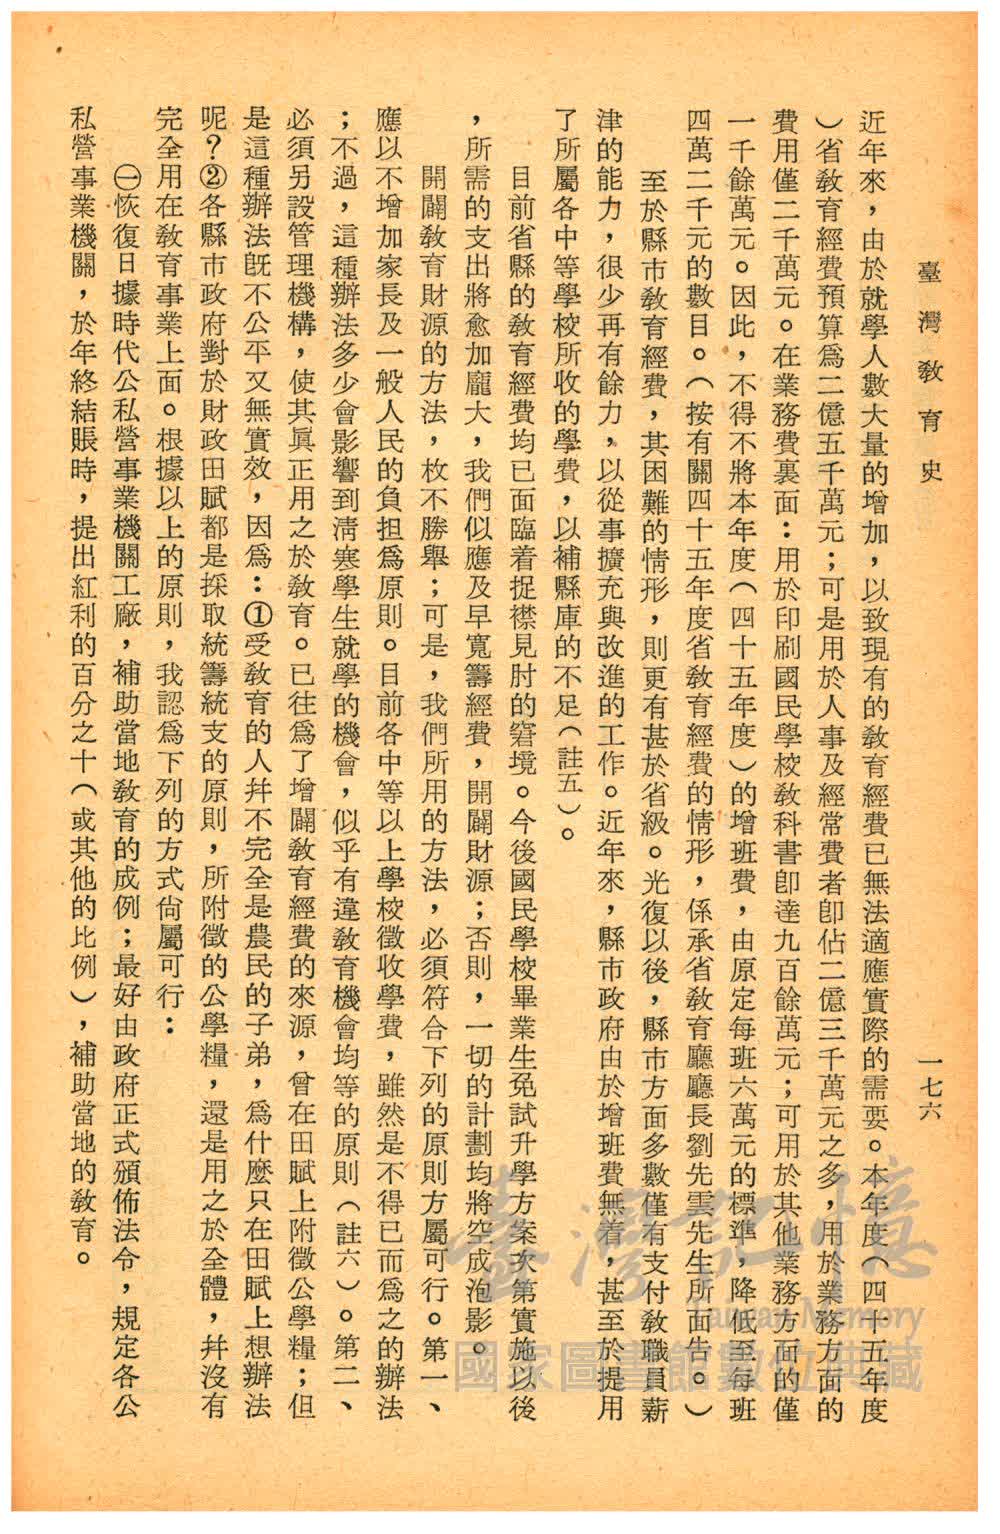 臺灣教育史
一七六
近年來，由於就學人數大量的增加，以致現有的教育經費已無法適應實際的需要。本年度（四十五年度
）省教育經費預算爲二億五千萬元；可是用於人事及經常費者卽佔二億三千萬元之多，用於業務方面的
費用僅二千萬元。在業務費裏面：用於印刷國民學校教科書卽達九百餘萬元；可用於其他業務方面的僅
一千餘萬元。因此，不得不將本年度（四十五年度）的增班費，由原定每班六萬元的標準，降低至每班
四萬二千元的數目。（按有關四十五年度省教育經費的情形，係承省教育廳廳長劉先雲先生所面告。）
至於縣市教育經費，其困難的情形，則更有甚於省級。光復以後，縣市方面多數僅有支付教職員薪
津的能力，很少再有餘力，以從事擴充與改進的工作。近年來，縣市政府由於增班費無着，甚至於提用
了所屬各中等學校所收的學費，以補縣庫的不足（註五）。
目前省縣的教育經費均已面臨着捉襟見肘的窘境。今後國民學校畢業生免試升學方案次第實施以後
，所需的支出將愈加龐大，我們似應及早寬籌經費，開闢財源；否則，一切的計劃均將空成泡影。
開闢教育財源的方法，枚不勝舉；可是，我們所用的方法，必須符合下列的原則方屬可行。第一、
應以不增加家長及一般人民的負担爲原則。目前各中等以上學校徵收學費，雖然是不得已而爲之的辦法
；不過，這種辦法多少會影響到淸寒學生就學的機會，似乎有違教育機會均等的原則（註六）。第二、
必須另設管理機構，使其眞正用之於教育。已往爲了增闢教育經費的來源，曾在田賦上附徵公學糧；但
是這種辦法旣不公平又無實效，因爲：①受教育的人幷不完全是農民的子弟，爲什麼只在田賦上想辦法
呢？②各縣市政府對於財政田賦都是採取統籌統支的原則，所附徵的公學糧，還是用之於全體，幷沒有
完全用在教育事業上面。根據以上的原則，我認爲下列的方式尙屬可行：
㊀恢復日據時代公私營事業機關工廠，補助當地教育的成例；最好由政府正式頒佈法令，規定各公
私營事業機關，於年終結賬時，提出紅利的百分之十（或其他的比例），補助當地的教育。
臺灣記憶
Taiwan Memory
國家圖書館數位典藏